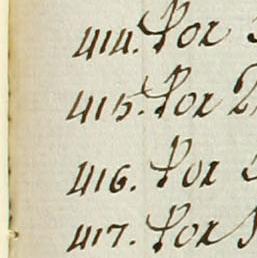 414. Por
415. Por
416. Por
417. Por